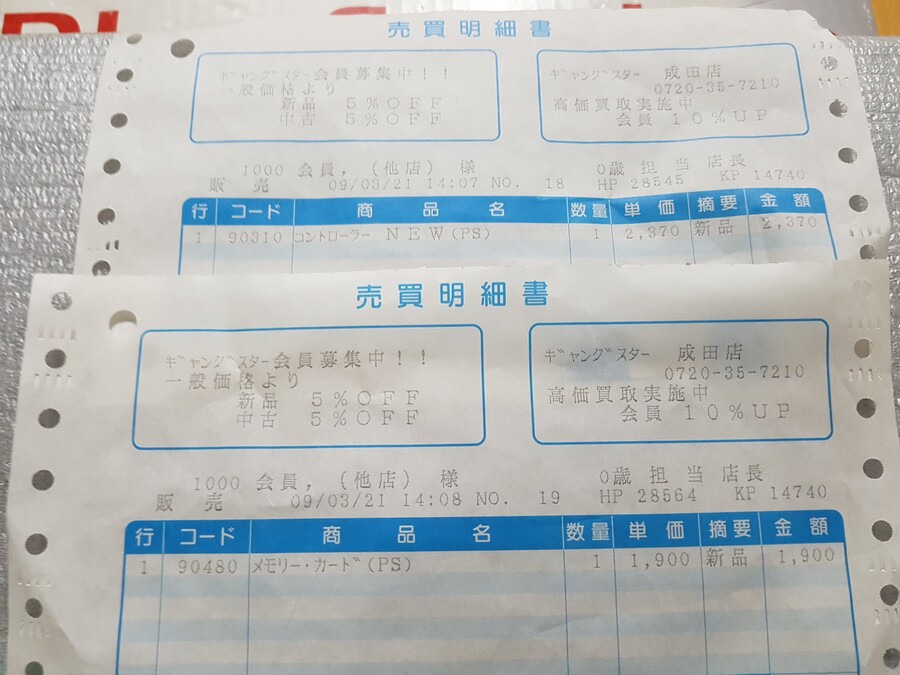 売買明細書
ギャングスター会員募集中！！
一般価格より
新品 ５％ＯＦＦ
中古 ５％ＯＦＦ
ギャングスター 成田店
0720-35-7210
高価買取実施中
会員 １０％ＵＰ
1000 会員，（他店） 様
0歳 担当 店長
販売 09/03/21 14:07 NO. 18 HP 28545 KP 14740
行 コード 商品名 数量 単価 摘要 金額
1 90310 コントローラー ＮＥＷ(PS) 1 2,370 新品 2,370
売買明細書
ギャングスター会員募集中！！
一般価格より
新品 ５％ＯＦＦ
中古 ５％ＯＦＦ
ギャングスター 成田店
0720-35-7210
高価買取実施中
会員 １０％ＵＰ
1000 会員，（他店） 様
0歳 担当 店長
販売 09/03/21 14:08 NO. 19 HP 28564 KP 14740
行 コード 商品名 数量 単価 摘要 金額
1 90480 メモリー・カード(PS) 1 1,900 新品 1,900